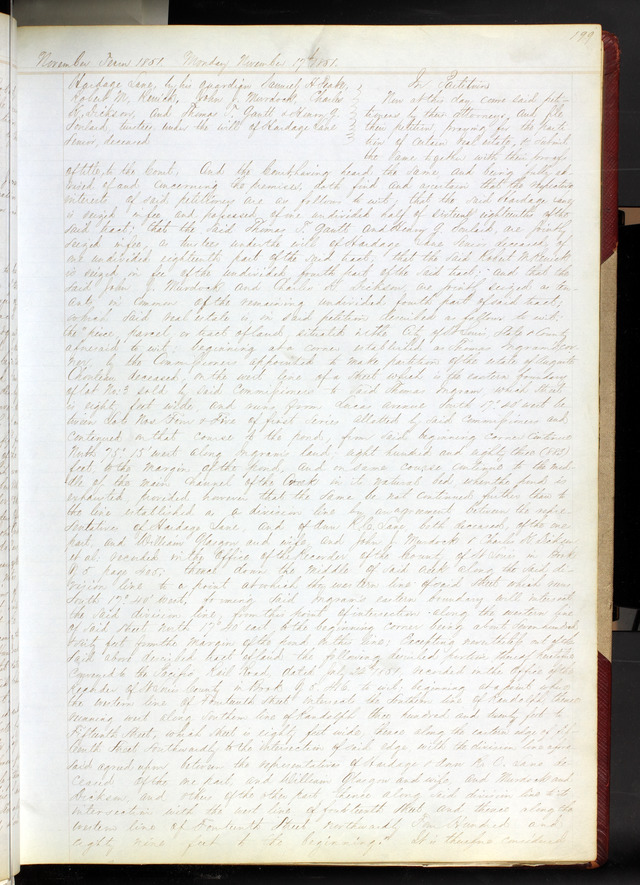 199
November Term 1851. Monday November 17th 1851.
Hardage Lane, by his guardian Samuel H.
Robert M. Renick, John J. Murdock, Charles
K. Dickson, and Thomas T. Gantt & Henry G.
Soulard, trustees under the will of Hardage Lane
Senior, deceased
In Partition
Now at this day come said peti-
tioners by their attorney and file
their petition praying for the parti-
tion of certain real estate, & submit
the same together with their proofs
of title, to the Court. And the Court having heard the same, and being fully ad-
vised of and concerning the premises, doth find and ascertain that the respective
interests of said petitioners are as follows to wit; that the said Hardage Lane
is seized in fee, and possessed of one undivided half of sixteen eighteenths of the
said tract; that the said Thomas T. Gantt and Henry G. Soulard, are jointly
seized in fee, as trustees under the will of Hardage Lane Senior deceased, of
one undivided eighteenth part of the said tract; that the said Robert M. Renick
is seized in fee of the undivided fourth part of the said tract; and that the
said John J. Murdock and Charles K. Dickson, are jointly seized as ten-
ants in common of the remaining undivided fourth part of said tract;
which said real estate is in said petition described as follows to wit:
the "piece, parcel or tract of land, situated in the City of St Louis State & County
aforesaid to wit; beginning at a corner established as Thomas Ingram's cor-
ner, by the Commissioners appointed to make partition of the estate of Auguste
Chouteau deceased, on the west line of a street which is the eastern boundary
of lot No. 3 sold by said Commissioners to said Thomas Ingram, which street
is eighty feet wide, and runs from Lucas Avenue South 17° 45' west be
tween Lots Nos Four & Five of first series allotted by said Commissioners and
continued on that course to the pond; from said beginning corner continue
North 75° 15' west along Ingram's land, eight hundred and eighty three (883)
feet to the margin of the pond, and on same course continue to the mid-
dle of the main channel of the creek in its natural bed when the pond is
exhausted, provided however that the same be not continued further than to
the line established as a division line by an agreement between the repre-
sentatives of Hardage Lane, and of Wm K. C. Lane both deceased, of the one
part, and William Glasgow and wife, and John J. Murdock & Charles K. Dickson
et al. recorded in the Office of the Recorder of the County of St Louis in Book
Y. 5 page 405; thence down the middle of said creek along the said di-
vision line to a point at which the western line of said street which runs
South 17° 45' west, forming said Ingram's eastern boundary will intersect
the said division line, from this point of intersection along the western line
of said street North 17° 45' east, to the beginning corner being about two hundred
& sixty feet from the margin of the pond to this line; Excepting nevertheless out of the
tract above described tract of land the following described portion thereof heretofore
conveyed to the Pacific Rail Road, dated July 24th 1851, recorded in the office of the
Recorder of St Louis County in Book Y. 5 to wit beginning at a point where
the western line of Fourteenth Street intersects the Southern line of Randolph, thence
running west along Southern line of Randolph three hundred and twenty feet to
Fifteenth Street, which street is eighty feet wide, thence along the eastern edge of Fif-
teenth Street southwardly to the intersection of said edge with the division line afore-
said agreed upon between the representatives of Hardage & Wm K. C. Lane de-
ceased of the one part, and William Glasgow and wife, and Murdock and
Dickson, and others of the other part, thence along said division line to its
intersection with the west line of Fourteenth Street, and thence along the
western line of Fourteenth Street northwardly Two Hundred and
eighty nine feet to the beginning." It is therefore considered